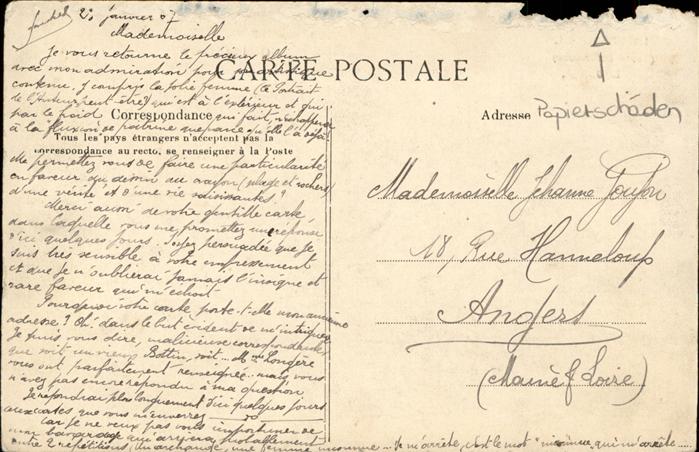 janvier 07
Mademoiselle
Je vous retourne le précieux album
avec mon admiration pour artistique
contenu, y compris la jolie femme (le Portrait
de l'Auteur peut-être) qui est à l'extérieur et qui
par le froid qui fait, n'échappera
à la fluxion de poitrine que parce qu'elle l'a déjà!
CARTE POSTALE
Correspondance
Tous les pays étrangers n'acceptent pas la
correspondance au recto, se renseigner à la Poste
Me permettez vous de faire une particularité
en faveur du dessin au crayon (plage et rochers)
d'une vérité et d'une vie saisissantes?
Merci aussi de votre gentille carte,
dans laquelle vous me promettez une réponse
d'ici quelques jours. Soyez persuadée que je
suis très sensible à votre empressement
et que je n'oublierai jamais l'insigne et
rare faveur qui m'échoit.
Pourquoi votre carte porte-t-elle mon ancienne
adresse? Oh! dans le but évident de m'intriguer
Je puis vous dire, malicieuse correspondante,
que soit un vieux Bottin, soit... Mlle Longère
vous ont parfaitement renseignée... mais vous
n'avez pas encore répondu à ma question
Je répondrai plus longuement d'ici quelques jours
aux cartes que vous m'enverrez
Car je ne veux pas vous importuner de
mon bavardage qui arrivera probablement
entre 2 répétitions, un archange, une femme inconnue... Je m'arrête, c'est le mot "inconnue, qui m'arrête.....
Adresse
Papierschäden
Mademoiselle Jehanne Goujon
18, Rue Hanneloup
Angers
(Maine & Loire)